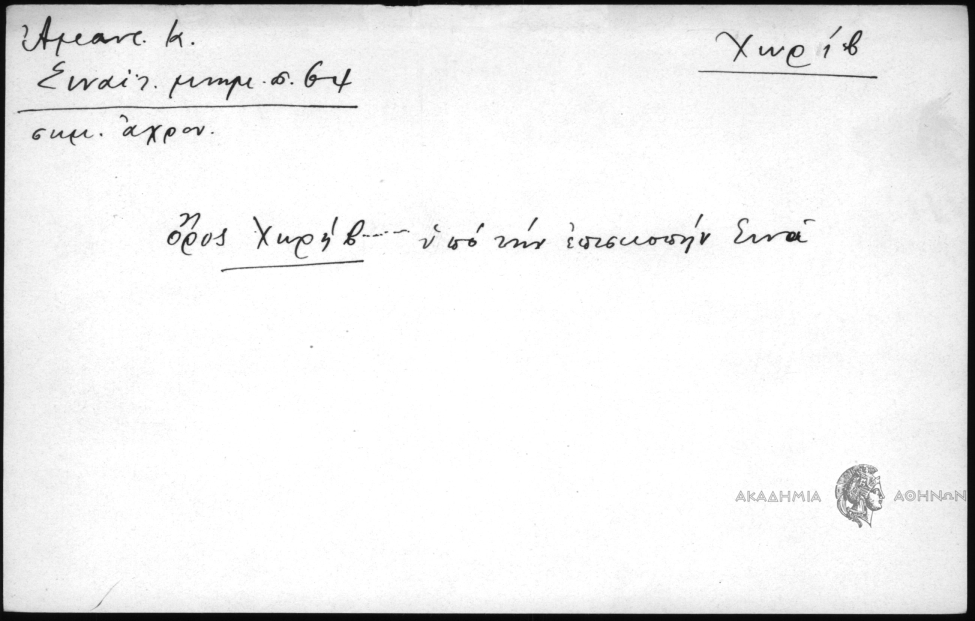 Ἀμαντ. Κ.
Χωρήβ
Σιναϊτ. μνημ. σ. 64
σημ. ἄχρον.
ὄρος Χωρήβ ...... ὑπό τήν ἐπισκοπήν Σινᾶ
ΑΚΑΔΗΜΙΑ ΑΘΗΝΩΝ